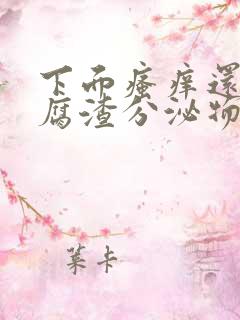 下而瘙痒還
腐渣分泌物
葉卡